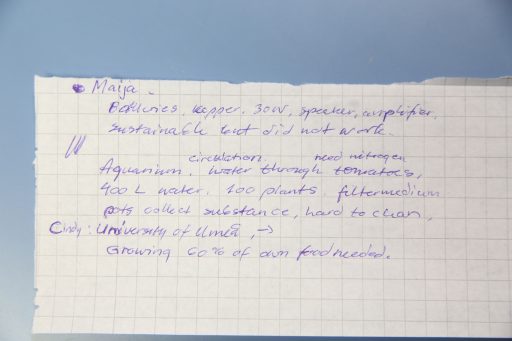 Maija -
Batteries, copper, 30W, speaker, amplifier,
sustainable but did not work.
circulation. need nitrogen
Aquarium, water through tomatoes,
400 L water, 100 plants filtermedium
pots collect substance, hard to clean,
Cindy: University of Umeå, →
Growing 60% of own food needed.